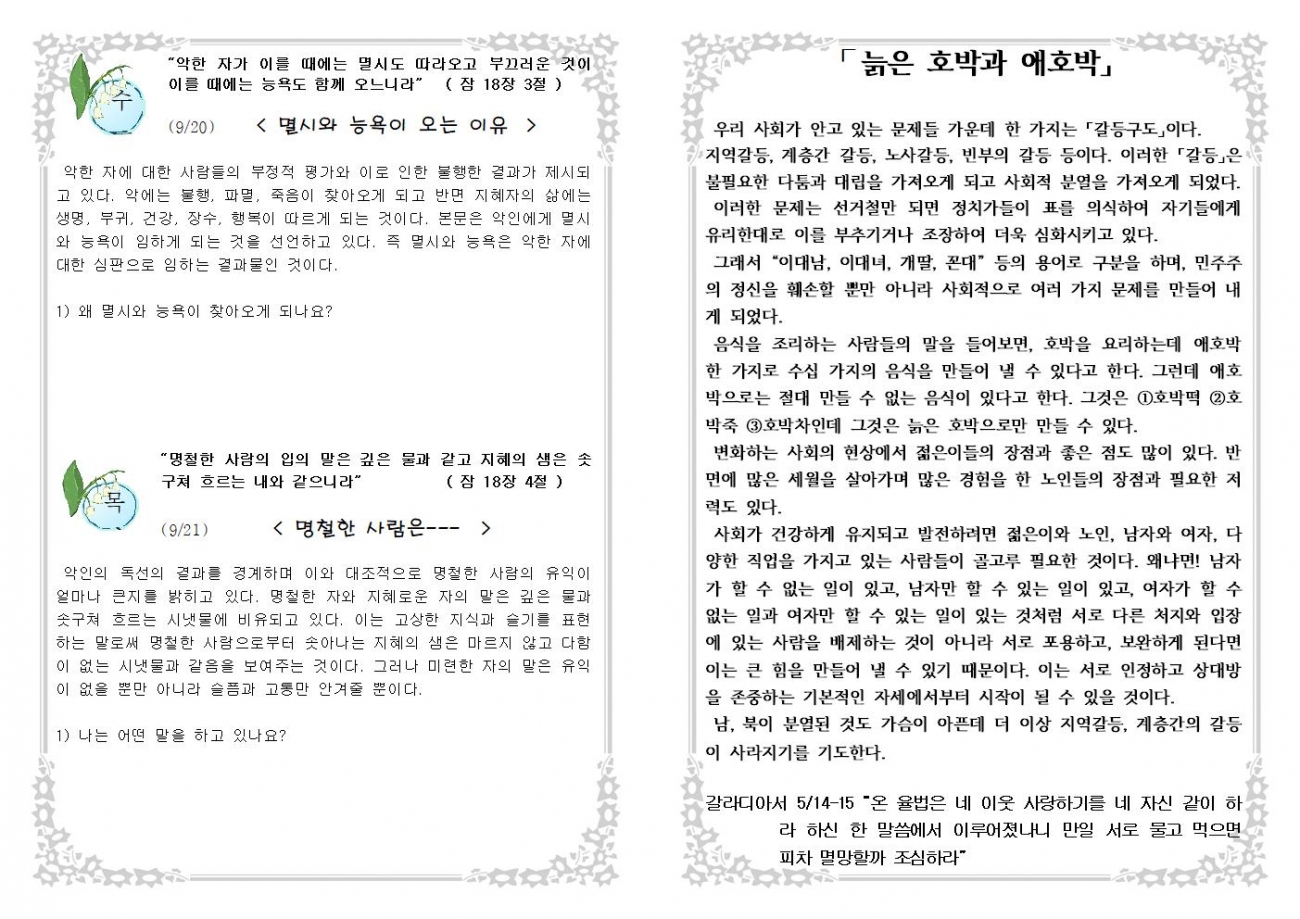 수
“악한 자가 이를 때에는 멸시도 따라오고 부끄러운 것이
이를 때에는 능욕도 함께 오느니라” ( 잠 18장 3절 )
(9/20) < 멸시와 능욕이 오는 이유 >
악한 자에 대한 사람들의 부정적 평가와 이로 인한 불행한 결과가 제시되
고 있다. 악에는 불행, 파멸, 죽음이 찾아오게 되고 반면 지혜자의 삶에는
생명, 부귀, 건강, 장수, 행복이 따르게 되는 것이다. 본문은 악인에게 멸시
와 능욕이 임하게 되는 것을 선언하고 있다. 즉 멸시와 능욕은 악한 자에
대한 심판으로 임하는 결과물인 것이다.
1) 왜 멸시와 능욕이 찾아오게 되나요?
목
“명철한 사람의 입의 말은 깊은 물과 같고 지혜의 샘은 솟
구쳐 흐르는 내와 같으니라” ( 잠 18장 4절 )
(9/21) < 명철한 사람은--- >
악인의 독선의 결과를 경계하며 이와 대조적으로 명철한 사람의 유익이
얼마나 큰지를 밝히고 있다. 명철한 자와 지혜로운 자의 말은 깊은 물과
솟구쳐 흐르는 시냇물에 비유되고 있다. 이는 고상한 지식과 슬기를 표현
하는 말로써 명철한 사람으로부터 솟아나는 지혜의 샘은 마르지 않고 다함
이 없는 시냇물과 같음을 보여주는 것이다. 그러나 미련한 자의 말은 유익
이 없을 뿐만 아니라 슬픔과 고통만 안겨줄 뿐이다.
1) 나는 어떤 말을 하고 있나요?
「늙은 호박과 애호박」
우리 사회가 안고 있는 문제들 가운데 한 가지는 「갈등구도」이다.
지역갈등, 계층간 갈등, 노사갈등, 빈부의 갈등 등이다. 이러한 「갈등」은
불필요한 다툼과 대립을 가져오게 되고 사회적 분열을 가져오게 되었다.
이러한 문제는 선거철만 되면 정치가들이 표를 의식하여 자기들에게
유리한대로 이를 부추기거나 조장하여 더욱 심화시키고 있다.
그래서 “이대남, 이대녀, 개딸, 꼰대” 등의 용어로 구분을 하며, 민주주
의 정신을 훼손할 뿐만 아니라 사회적으로 여러 가지 문제를 만들어 내
게 되었다.
음식을 조리하는 사람들의 말을 들어보면, 호박을 요리하는데 애호박
한 가지로 수십 가지의 음식을 만들어 낼 수 있다고 한다. 그런데 애호
박으로는 절대 만들 수 없는 음식이 있다고 한다. 그것은 ①호박떡 ②호
박죽 ③호박차인데 그것은 늙은 호박으로만 만들 수 있다.
변화하는 사회의 현상에서 젊은이들의 장점과 좋은 점도 많이 있다. 반
면에 많은 세월을 살아가며 많은 경험을 한 노인들의 장점과 필요한 저
력도 있다.
사회가 건강하게 유지되고 발전하려면 젊은이와 노인, 남자와 여자, 다
양한 직업을 가지고 있는 사람들이 골고루 필요한 것이다. 왜냐면! 남자
가 할 수 없는 일이 있고, 남자만 할 수 있는 일이 있고, 여자가 할 수
없는 일과 여자만 할 수 있는 일이 있는 것처럼 서로 다른 처지와 입장
에 있는 사람을 배제하는 것이 아니라 서로 포용하고, 보완하게 된다면
이는 큰 힘을 만들어 낼 수 있기 때문이다. 이는 서로 인정하고 상대방
을 존중하는 기본적인 자세에서부터 시작이 될 수 있을 것이다.
남, 북이 분열된 것도 가슴이 아픈데 더 이상 지역갈등, 계층간의 갈등
이 사라지기를 기도한다.
갈라디아서 5/14-15 "온 율법은 네 이웃 사랑하기를 네 자신 같이 하
라 하신 한 말씀에서 이루어졌나니 만일 서로 물고 먹으면
피차 멸망할까 조심하라"